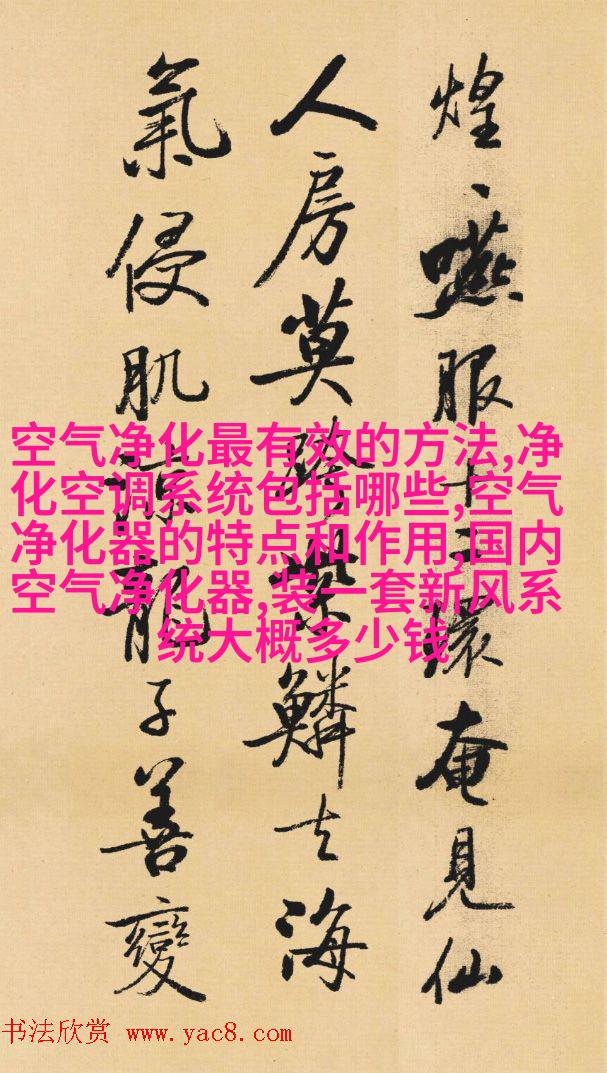 煌〻嚥服十二環奄見仙
人房莫跨紫鱗去海
氣侵肌涼龍子善變
空气净化最有效的方法,净
化空调系统包括哪些,空气
净化器的特点和作用,国内
空气净化器,装一套新风系
统大概多少钱
书法欣赏 www.yac8.com